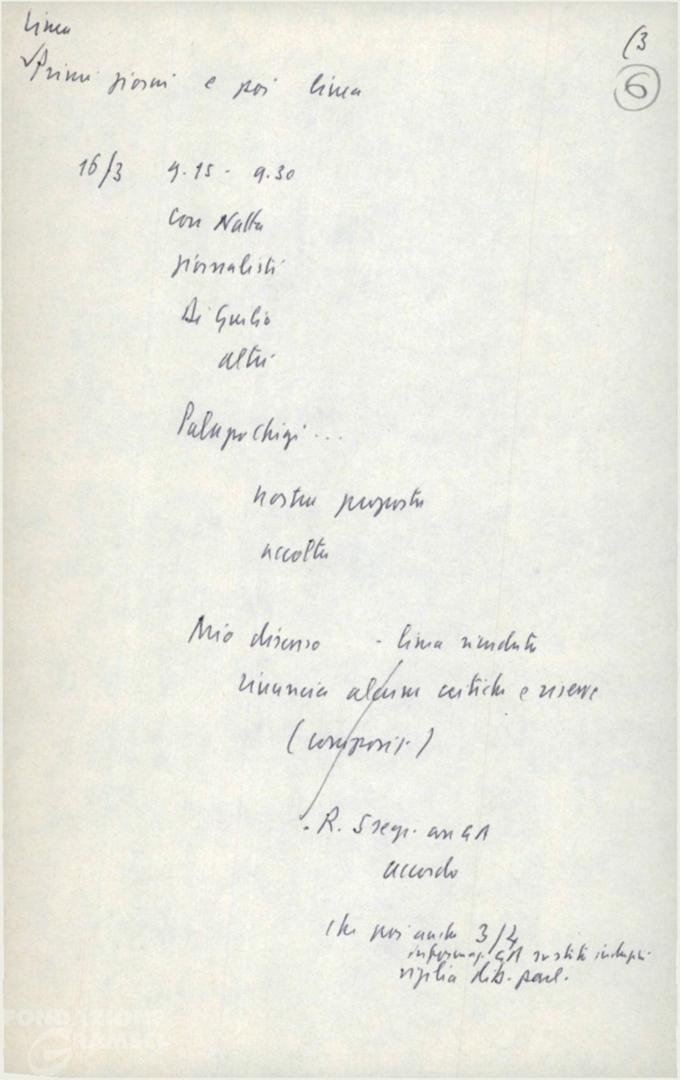 Linea
(3
6
✓Primi giorni e poi linea
16/3 9.15 - 9.30
con Natta
giornalisti
Di Giulio
altri
Palazzo Chigi ...
nostra proposta
accolta
Mio discorso - linea
rinuncia alcune critiche e riserve
(composiz.)
. R. 5 segr. con GA
accordo
che poi anche 3/4
informaz. GA su stato indagini
vigilia dib. parl.
FONDAZIONE
GRAMSCI